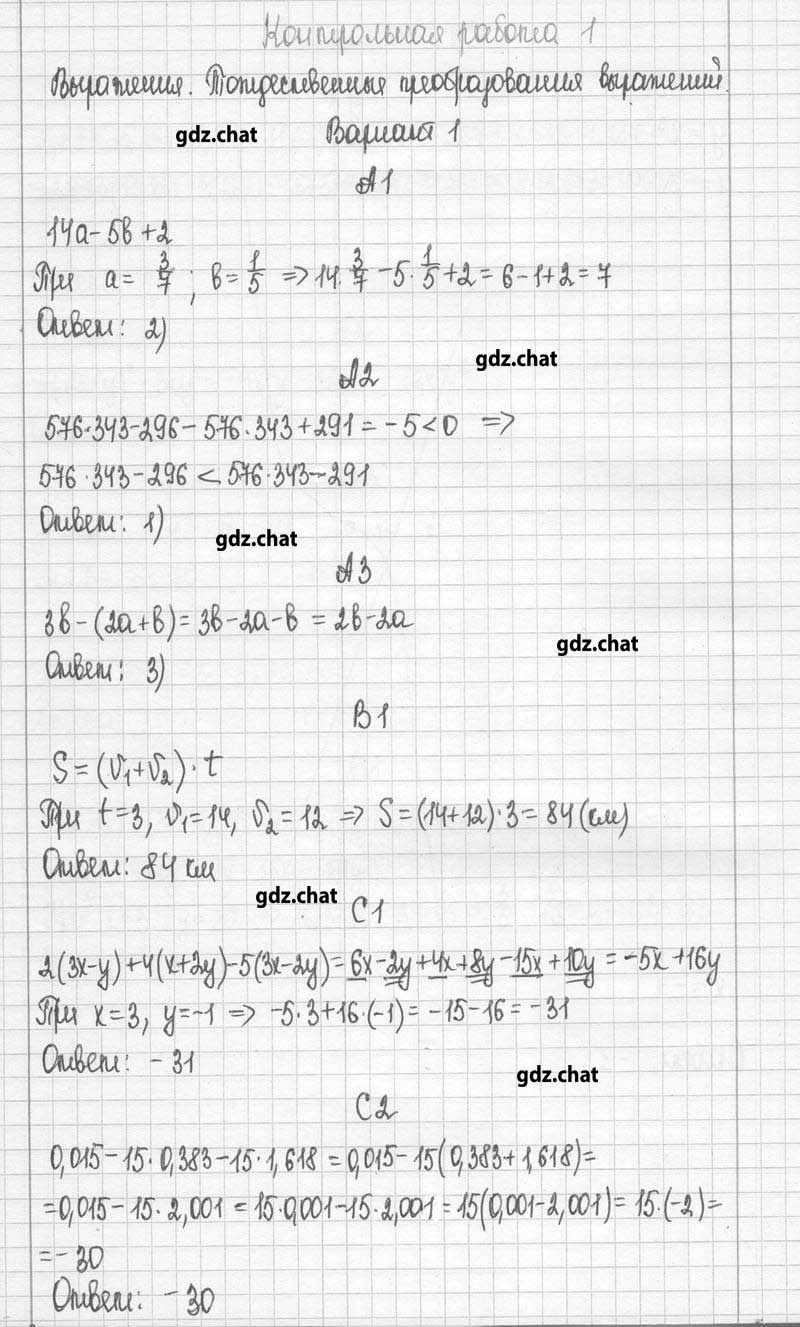 Контрольная работа 1
Выражения. Тождественные преобразования выражений.
gdz.chat
Вариант 1
А1
14a-5b+2
При a= 3/7 ; b= 1/5 ⇒ 14·3/7 -5·1/5+2=6-1+2=7
Ответ: 2)
gdz.chat
А2
576·343-296-576·343+291=-5<0 ⇒
576·343-296<576·343-291
Ответ: 1)
gdz.chat
А3
3b-(2a+b)=3b-2a-b=2b-2a
gdz.chat
Ответ: 3)
В1
S=(V₁+V₂)·t
При t=3, V₁=14, V₂=12 ⇒ S=(14+12)·3=84(км)
Ответ: 84 км
gdz.chat
С1
2(3x-y)+4(x+2y)-5(3x-2y)=6x-2y+4x+8y-15x+10y=-5x+16y
При x=3, y=-1 ⇒ -5·3+16·(-1)=-15-16=-31
Ответ: -31
gdz.chat
С2
0,015-15·0,383-15·1,618=0,015-15(0,383+1,618)=
=0,015-15·2,001=15·0,001-15·2,001=15(0,001-2,001)=15·(-2)=
=-30
Ответ: -30